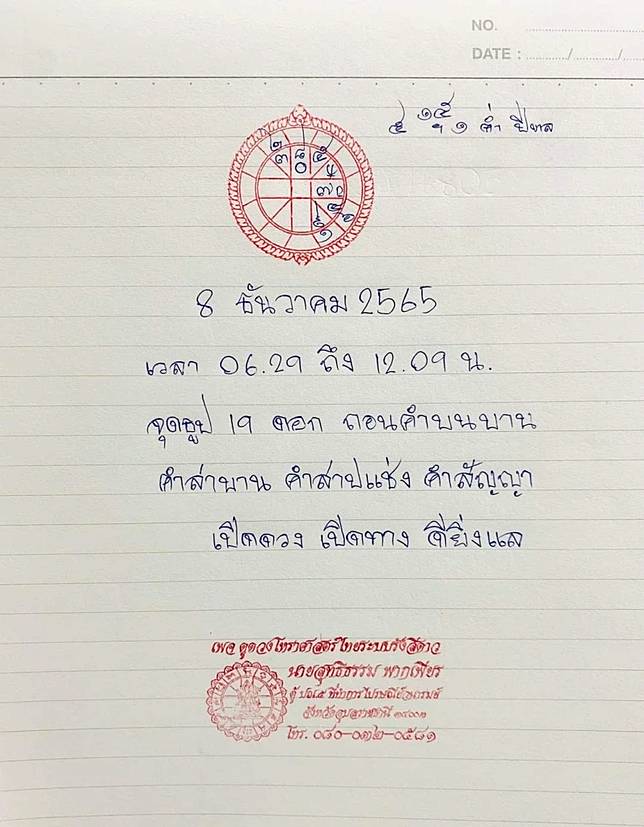 NO.
DATE : ......../......../........
๕ ๑๕ ๑ ค่ำ ปีขาล
8 ธันวาคม 2565
เวลา 06.29 ถึง 12.09 น.
จุดธูป 19 ดอก ถอนคำบนบาน
คำสาบาน คำสาปแช่ง คำสัญญา
เปิดดวง เปิดทาง ดียิ่งแล
เพจ ดูดวงโหราศาสตร์ไทยระบบรังสีดาว
นายสุทธิธรรม พากเพียร
ตู้ ปณ.๕ ที่ทำการไปรษณีย์
จังหวัดอุบลราชธานี
โทร. ๐๘๐-๐๗๒-๐๕๘๑